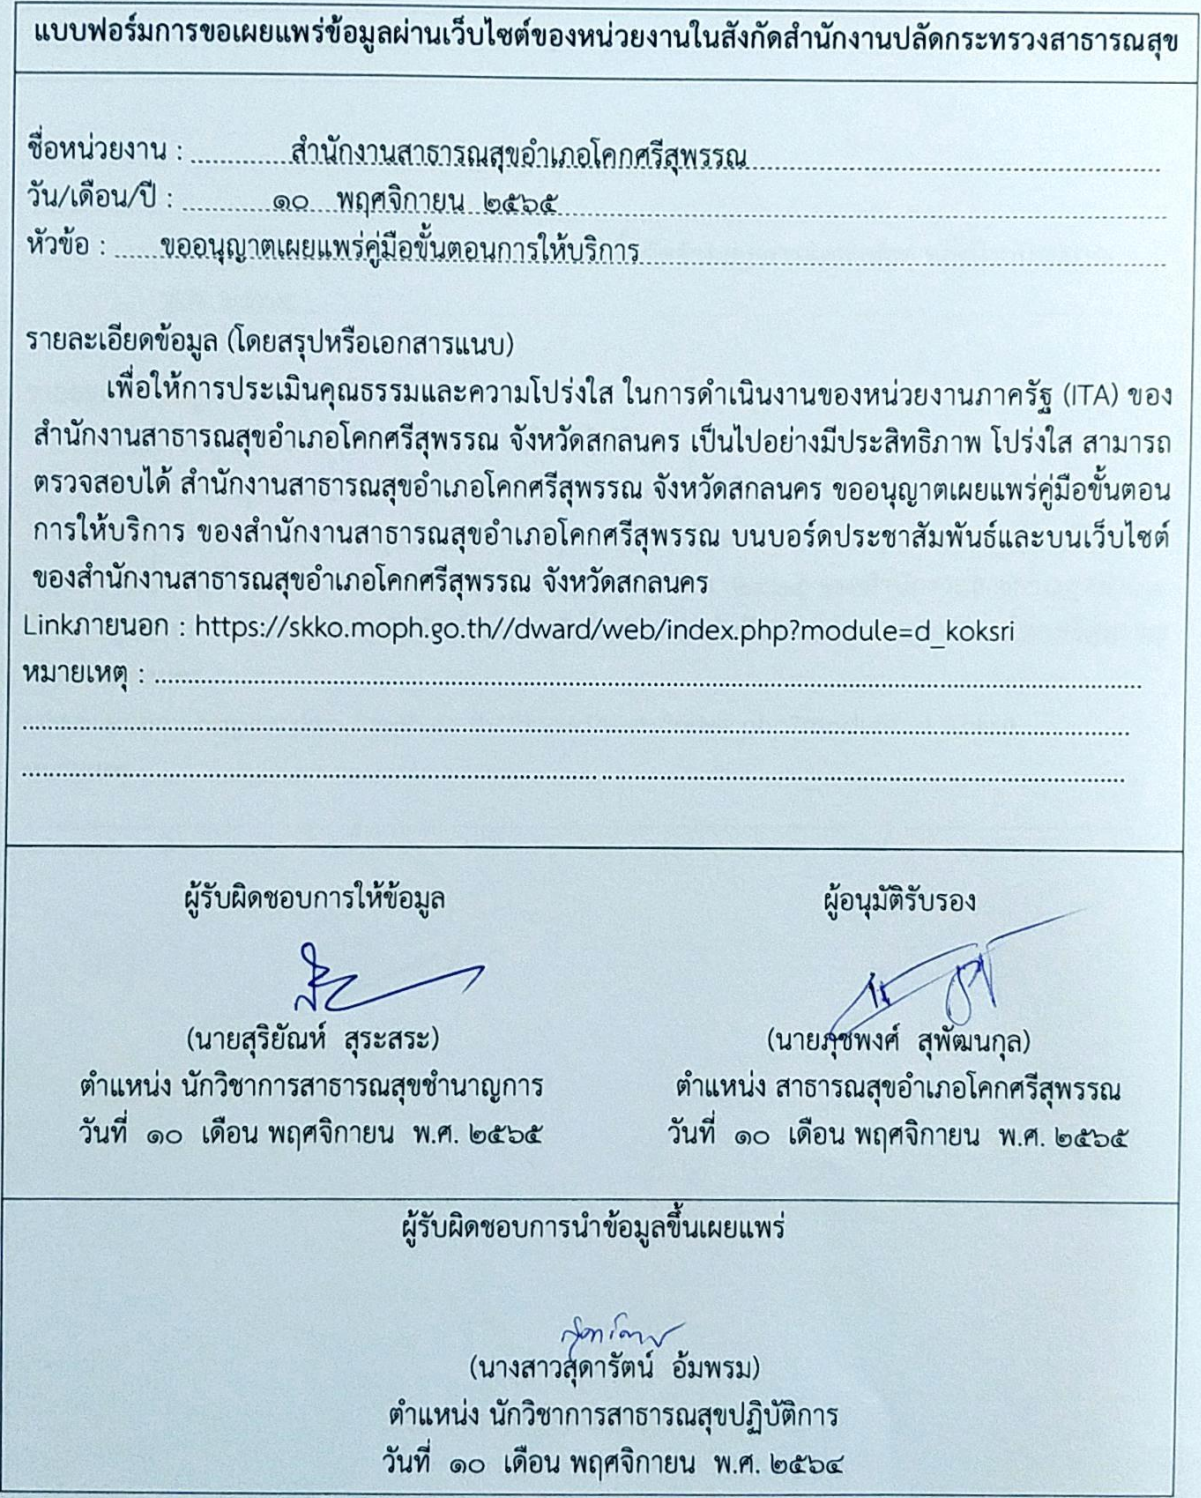 แบบฟอร์มการขอเผยแพร่ข้อมูลผ่านเว็บไซต์ของหน่วยงานในสังกัดสำนักงานปลัดกระทรวงสาธารณสุข
ชื่อหน่วยงาน : สำนักงานสาธารณสุขอำเภอโคกศรีสุพรรณ
วัน/เดือน/ปี : ๑๐ พฤศจิกายน ๒๕๖๕
หัวข้อ : ขออนุญาตเผยแพร่คู่มือขั้นตอนการให้บริการ
รายละเอียดข้อมูล (โดยสรุปหรือเอกสารแนบ)
เพื่อให้การประเมินคุณธรรมและความโปร่งใส ในการดำเนินงานของหน่วยงานภาครัฐ (ITA) ของ
สำนักงานสาธารณสุขอำเภอโคกศรีสุพรรณ จังหวัดสกลนคร เป็นไปอย่างมีประสิทธิภาพ โปร่งใส สามารถ
ตรวจสอบได้ สำนักงานสาธารณสุขอำเภอโคกศรีสุพรรณ จังหวัดสกลนคร ขออนุญาตเผยแพร่คู่มือขั้นตอน
การให้บริการ ของสำนักงานสาธารณสุขอำเภอโคกศรีสุพรรณ บนบอร์ดประชาสัมพันธ์และบนเว็บไซต์
ของสำนักงานสาธารณสุขอำเภอโคกศรีสุพรรณ จังหวัดสกลนคร
Linkภายนอก : https://skko.moph.go.th//dward/web/index.php?module=d_koksri
หมายเหตุ :
ผู้รับผิดชอบการให้ข้อมูล
(นายสุริยัณห์ สุระสระ)
ตำแหน่ง นักวิชาการสาธารณสุขชำนาญการ
วันที่ ๑๐ เดือน พฤศจิกายน พ.ศ. ๒๕๖๕
ผู้อนุมัติรับรอง
(นายภุชพงศ์ สุพัฒนกุล)
ตำแหน่ง สาธารณสุขอำเภอโคกศรีสุพรรณ
วันที่ ๑๐ เดือน พฤศจิกายน พ.ศ. ๒๕๖๕
ผู้รับผิดชอบการนำข้อมูลขึ้นเผยแพร่
(นางสาวสุดารัตน์ อ้มพรม)
ตำแหน่ง นักวิชาการสาธารณสุขปฏิบัติการ
วันที่ ๑๐ เดือน พฤศจิกายน พ.ศ. ๒๕๖๔